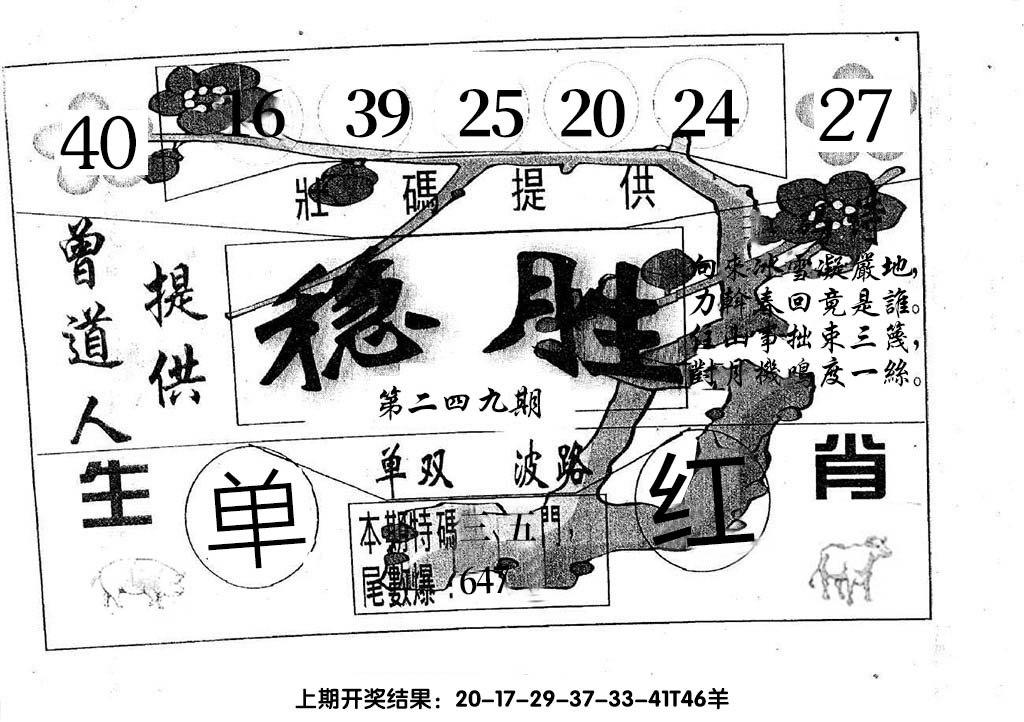 40 16 39 25 20 24 27
壯碼提供
曾道人
提供
稳胜
第二四九期
向來冰雪凝嚴地，
力斡春回竟是誰。
任凶事拙東三篾，
對月機鳴度一絲。
单双 波路
生肖
单
红
本期特碼三、五門，
尾數爆:647
上期开奖结果：20-17-29-37-33-41T46羊